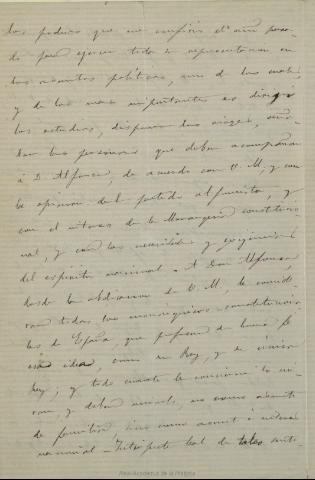 los poderes que me confirió el año pasa-
do para ejercer toda su representacion en
los asuntos politicos, uno de los cuales,
y de los mas importantes es dirigir
los estudios, disponer los viages,
las personas que deban acompañar
á D. Alfonso, de acuerdo con V. M, y con
la opinion del partido alfonsista, y
con el interes de la Monarquia constitucio-
nal, y con las necesidades y exigencias
del espiritu nacional. A Don Alfonso,
desde la abdicacion de V. M. le conside-
ran todos los monarquicos constituciona-
les de España, que profesan de buena fé
esa idea, como su Rey, y su único
Rey; y todo cuanto le concierne lo mi-
ran, y deben mirarlo, no como asunto
de familia sino como asunto de interes
nacional. Intérprete leal de tales senti-
Real Academia de la Historia